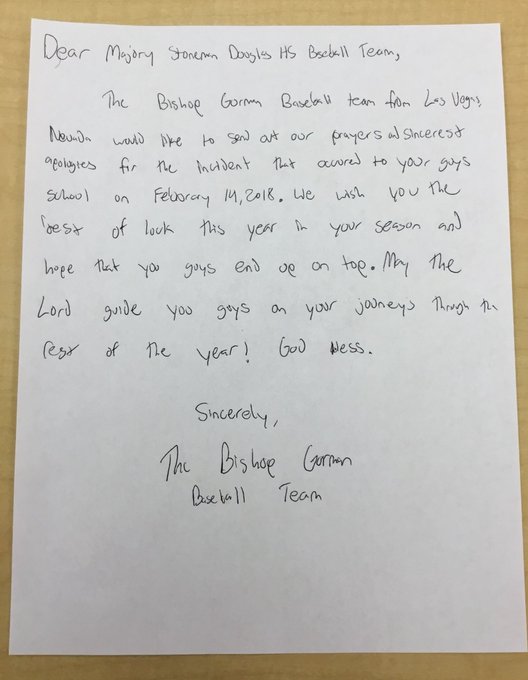 Dear Majory Stoneman Douglas HS Baseball Team,
The Bishop Gorman Baseball team from Las Vegas,
Nevada would like to send out our prayers and sincerest
apologies for the incident that occured to your guys
school on Feboray 14, 2018. We wish you the
best of luck this year in your season and
hope that you guys end up on top. May the
Lord guide you guys on your journeys through the
rest of the year! God bless.
Sincerely,
The Bishop Gorman
Baseball Team